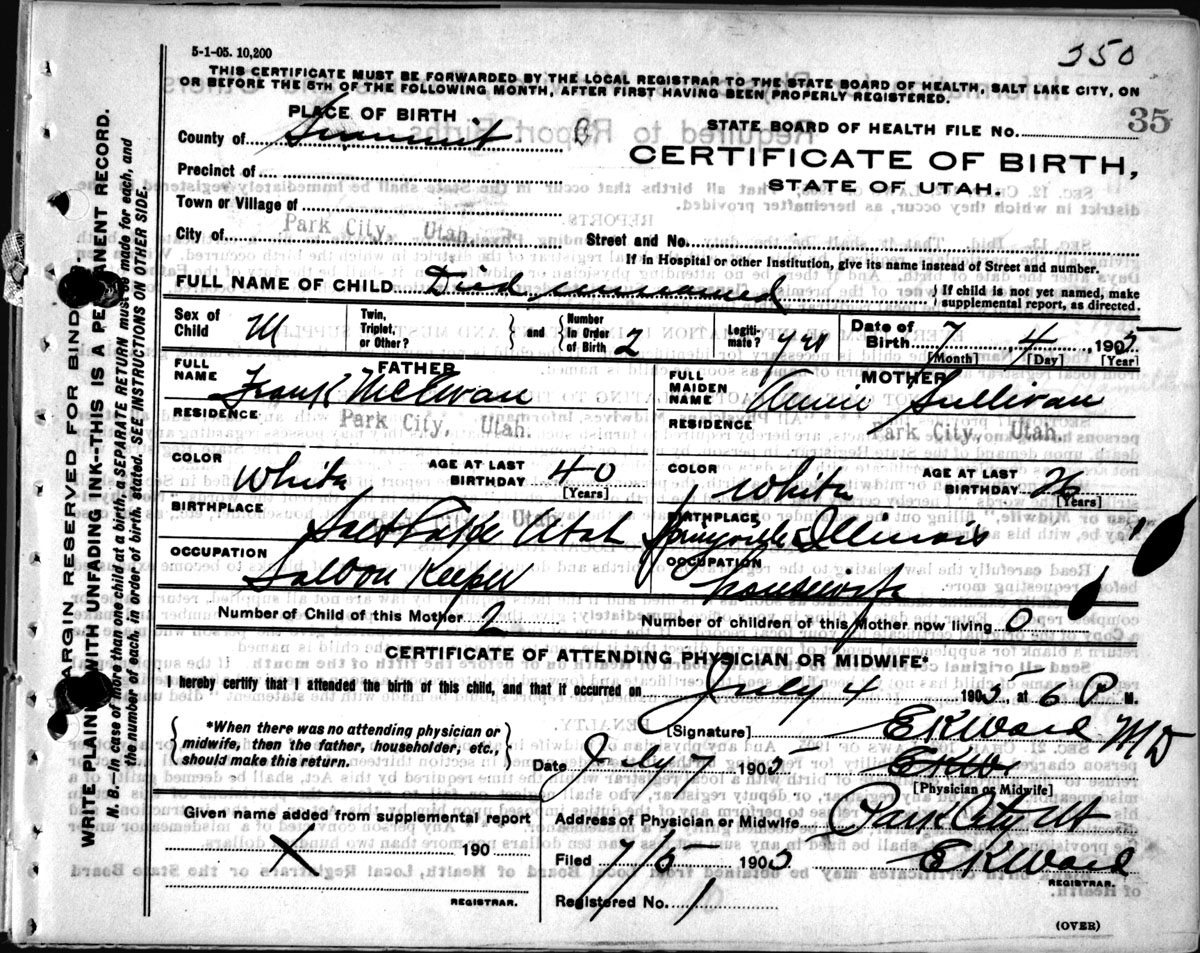 5-1-05. 10,200
350
THIS CERTIFICATE MUST BE FORWARDED BY THE LOCAL REGISTRAR TO THE STATE BOARD OF HEALTH, SALT LAKE CITY, ON
OR BEFORE THE 5TH OF THE FOLLOWING MONTH, AFTER FIRST HAVING BEEN PROPERLY REGISTERED.
PLACE OF BIRTH
County of Summit
Precinct of
Town or Village of
City of Park City, Utah.
STATE BOARD OF HEALTH FILE NO. 35
CERTIFICATE OF BIRTH,
STATE OF UTAH.
Street and No.
If in Hospital or other Institution, give its name instead of Street and number.
FULL NAME OF CHILD Died unnamed
} If child is not yet named, make
supplemental report, as directed.
Sex of Child M
Twin, Triplet, or Other? } and { Number in Order of Birth 2
Legitimate? yes
Date of Birth 7 4, 1905
[Month] [Day] [Year]
FATHER
FULL NAME Frank McEwan
RESIDENCE Park City, Utah.
COLOR White
AGE AT LAST BIRTHDAY 40 [Years]
BIRTHPLACE Salt Lake Utah
OCCUPATION Saloon Keeper
MOTHER
FULL MAIDEN NAME Sullivan
RESIDENCE Park City, Utah.
COLOR White
AGE AT LAST BIRTHDAY 26 [Years]
BIRTHPLACE Illinois
OCCUPATION housewife
Number of Child of this Mother 2
Number of children of this Mother now living 0
CERTIFICATE OF ATTENDING PHYSICIAN OR MIDWIFE*
I hereby certify that I attended the birth of this child, and that it occurred on July 4 1905, at 6 P M.
{ *When there was no attending physician or
midwife, then the father, householder, etc.,
should make this return. }
[Signature] EKWard MD
Date July 7 1905 EKW
[Physician or Midwife]
Given name added from supplemental report
X 190
REGISTRAR.
Address of Physician or Midwife Park City Ut
Filed 7/5 1905 EKWard
REGISTRAR.
Registered No. 1
(OVER)
MARGIN RESERVED FOR BINDING.
WRITE PLAINLY WITH UNFADING INK--THIS IS A PERMANENT RECORD.
N. B.--In case of more than one child at a birth, a SEPARATE RETURN must be made for each, and
the number of each, in order of birth, stated. SEE INSTRUCTIONS ON OTHER SIDE.